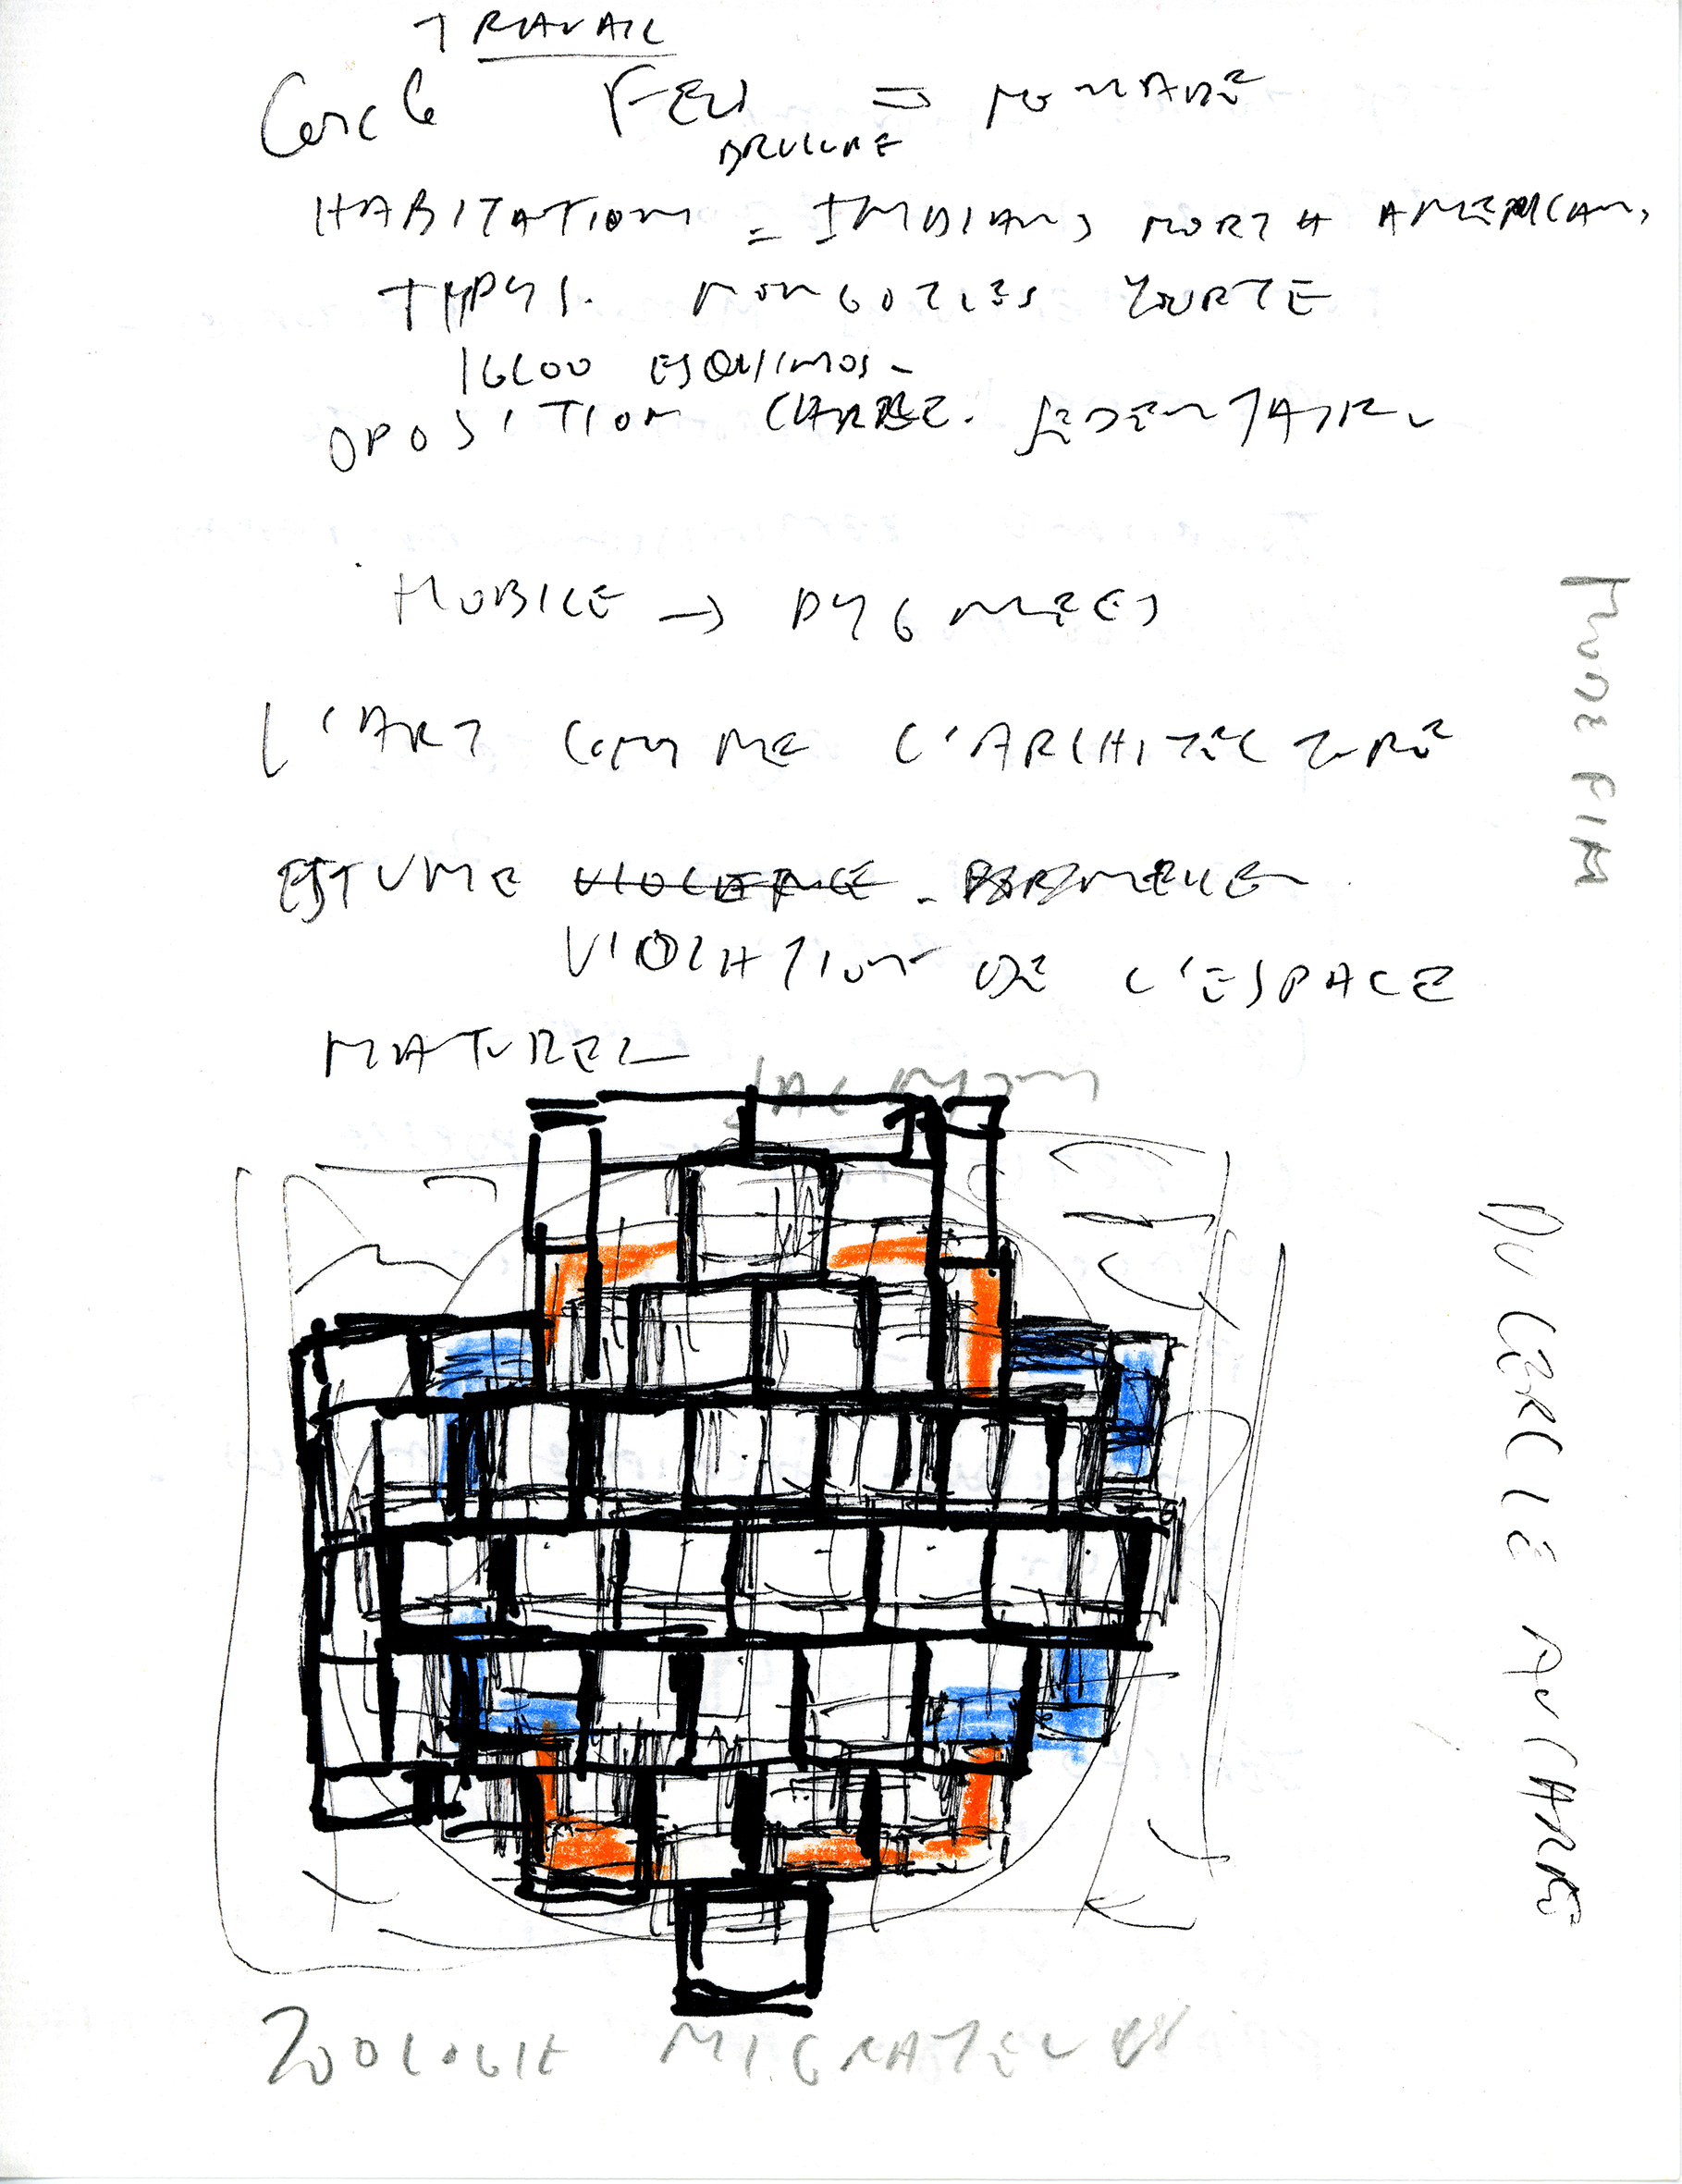 TRAVAIL
Cercle FEU = NOMADE
BRULURE
HABITATION = INDIANS NORTH AMERICAN,
TYPYS. MONGOLES YOURTE
IGLOO ESQUIMOS -
OPOSITION CARRE. SEDENTAIRE
MOBILE → PYGMEES
L'ART COMME L'ARCHITECTURE
EST UNE VIOLENCE -
VIOLATION DE L'ESPACE
NATUREL
ZOOLOGIE MIGRATEURS
DU CERCLE AU CARRE